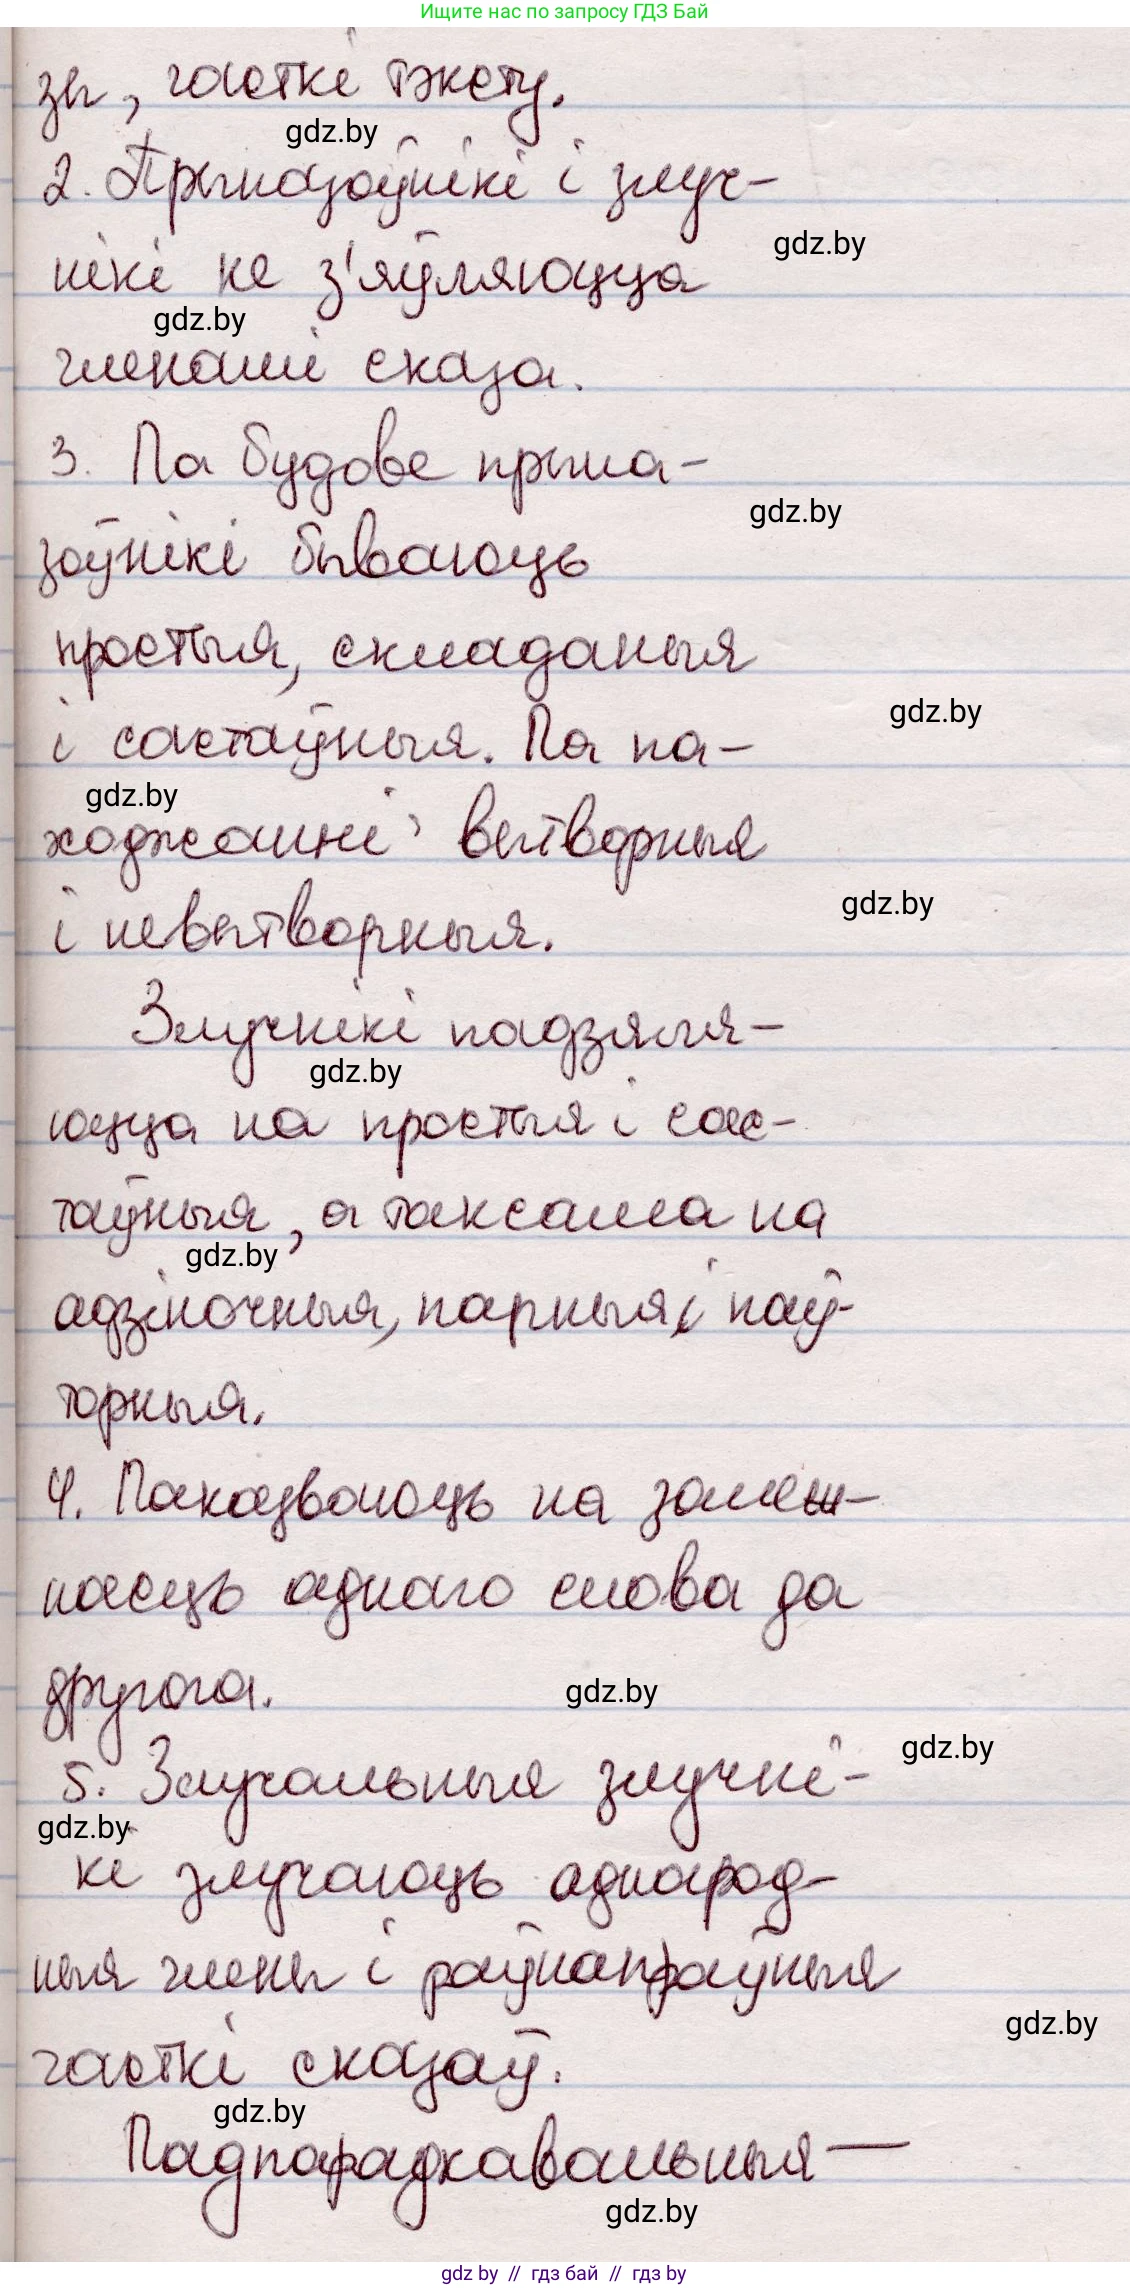 Ищите нас по запросу ГДЗ Бай
зы, часткі тэксту.
gdz.by
2. Прыназоўнікі і злуч-
gdz.by
нікі не з'яўляюцца
gdz.by
членамі сказа.
3. Па будове прына-
gdz.by
зоўнікі бываюць
простыя, складаныя
gdz.by
і састаўныя. Па па-
gdz.by
ходжанні: вытворныя
gdz.by
і невытворныя.
Злучнікі падзяля-
gdz.by
юцца на простыя і сас-
таўныя, а таксама на
gdz.by
адзіночныя, парныя і паў-
торныя.
4. Паказваюць на залеж-
насць аднаго слова да
другога.
gdz.by
gdz.by
5. Злучальныя злучні-
gdz.by
кі злучаюць аднарод-
ныя члены і раўнапраўныя
gdz.by
часткі сказаў.
gdz.by
Падпарадкавальныя —
gdz.by
gdz by // гдз бай // гдз by